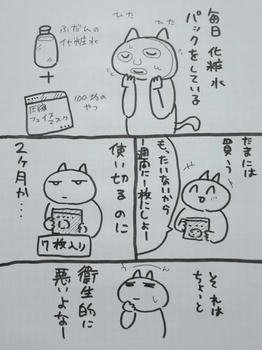 毎日化粧水
パックをしている
ひた
ひた
ふだんの
化粧水
+
100均の
やつ
圧縮
フェイスマスク
たまには
買う
もったいないから
1週間に1枚にしよー
使い切るのに
2ヶ月か…
7枚入り
それは
ちょっと
衛生的に
悪いよなー